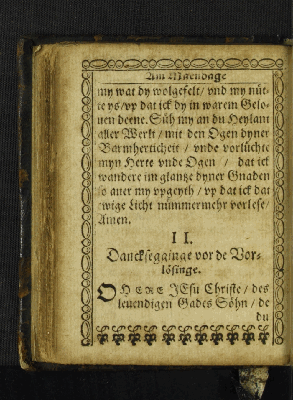 Am Mãendage
my wat dy wolgefelt / vnd my nüt-
te ys / vp dat ick dy in warem Gelo-
uen deene. Süh my an du Heylant
aller Werlt / mit den Ogen dyner
Barmherticheit / vnde vorlüchte
myn Herte vnde Ogen / dat ick
wandere im glantze dyner Gnaden
so auer my vpgeyth / vp dat ick dat
ewige Licht nümmermehr vorlese /
Amen.
II.
Dancksegginge vor de Vor-
lösinge.
O HERE JEsu Christe / des
leuendigen Gades Söhn / de
du